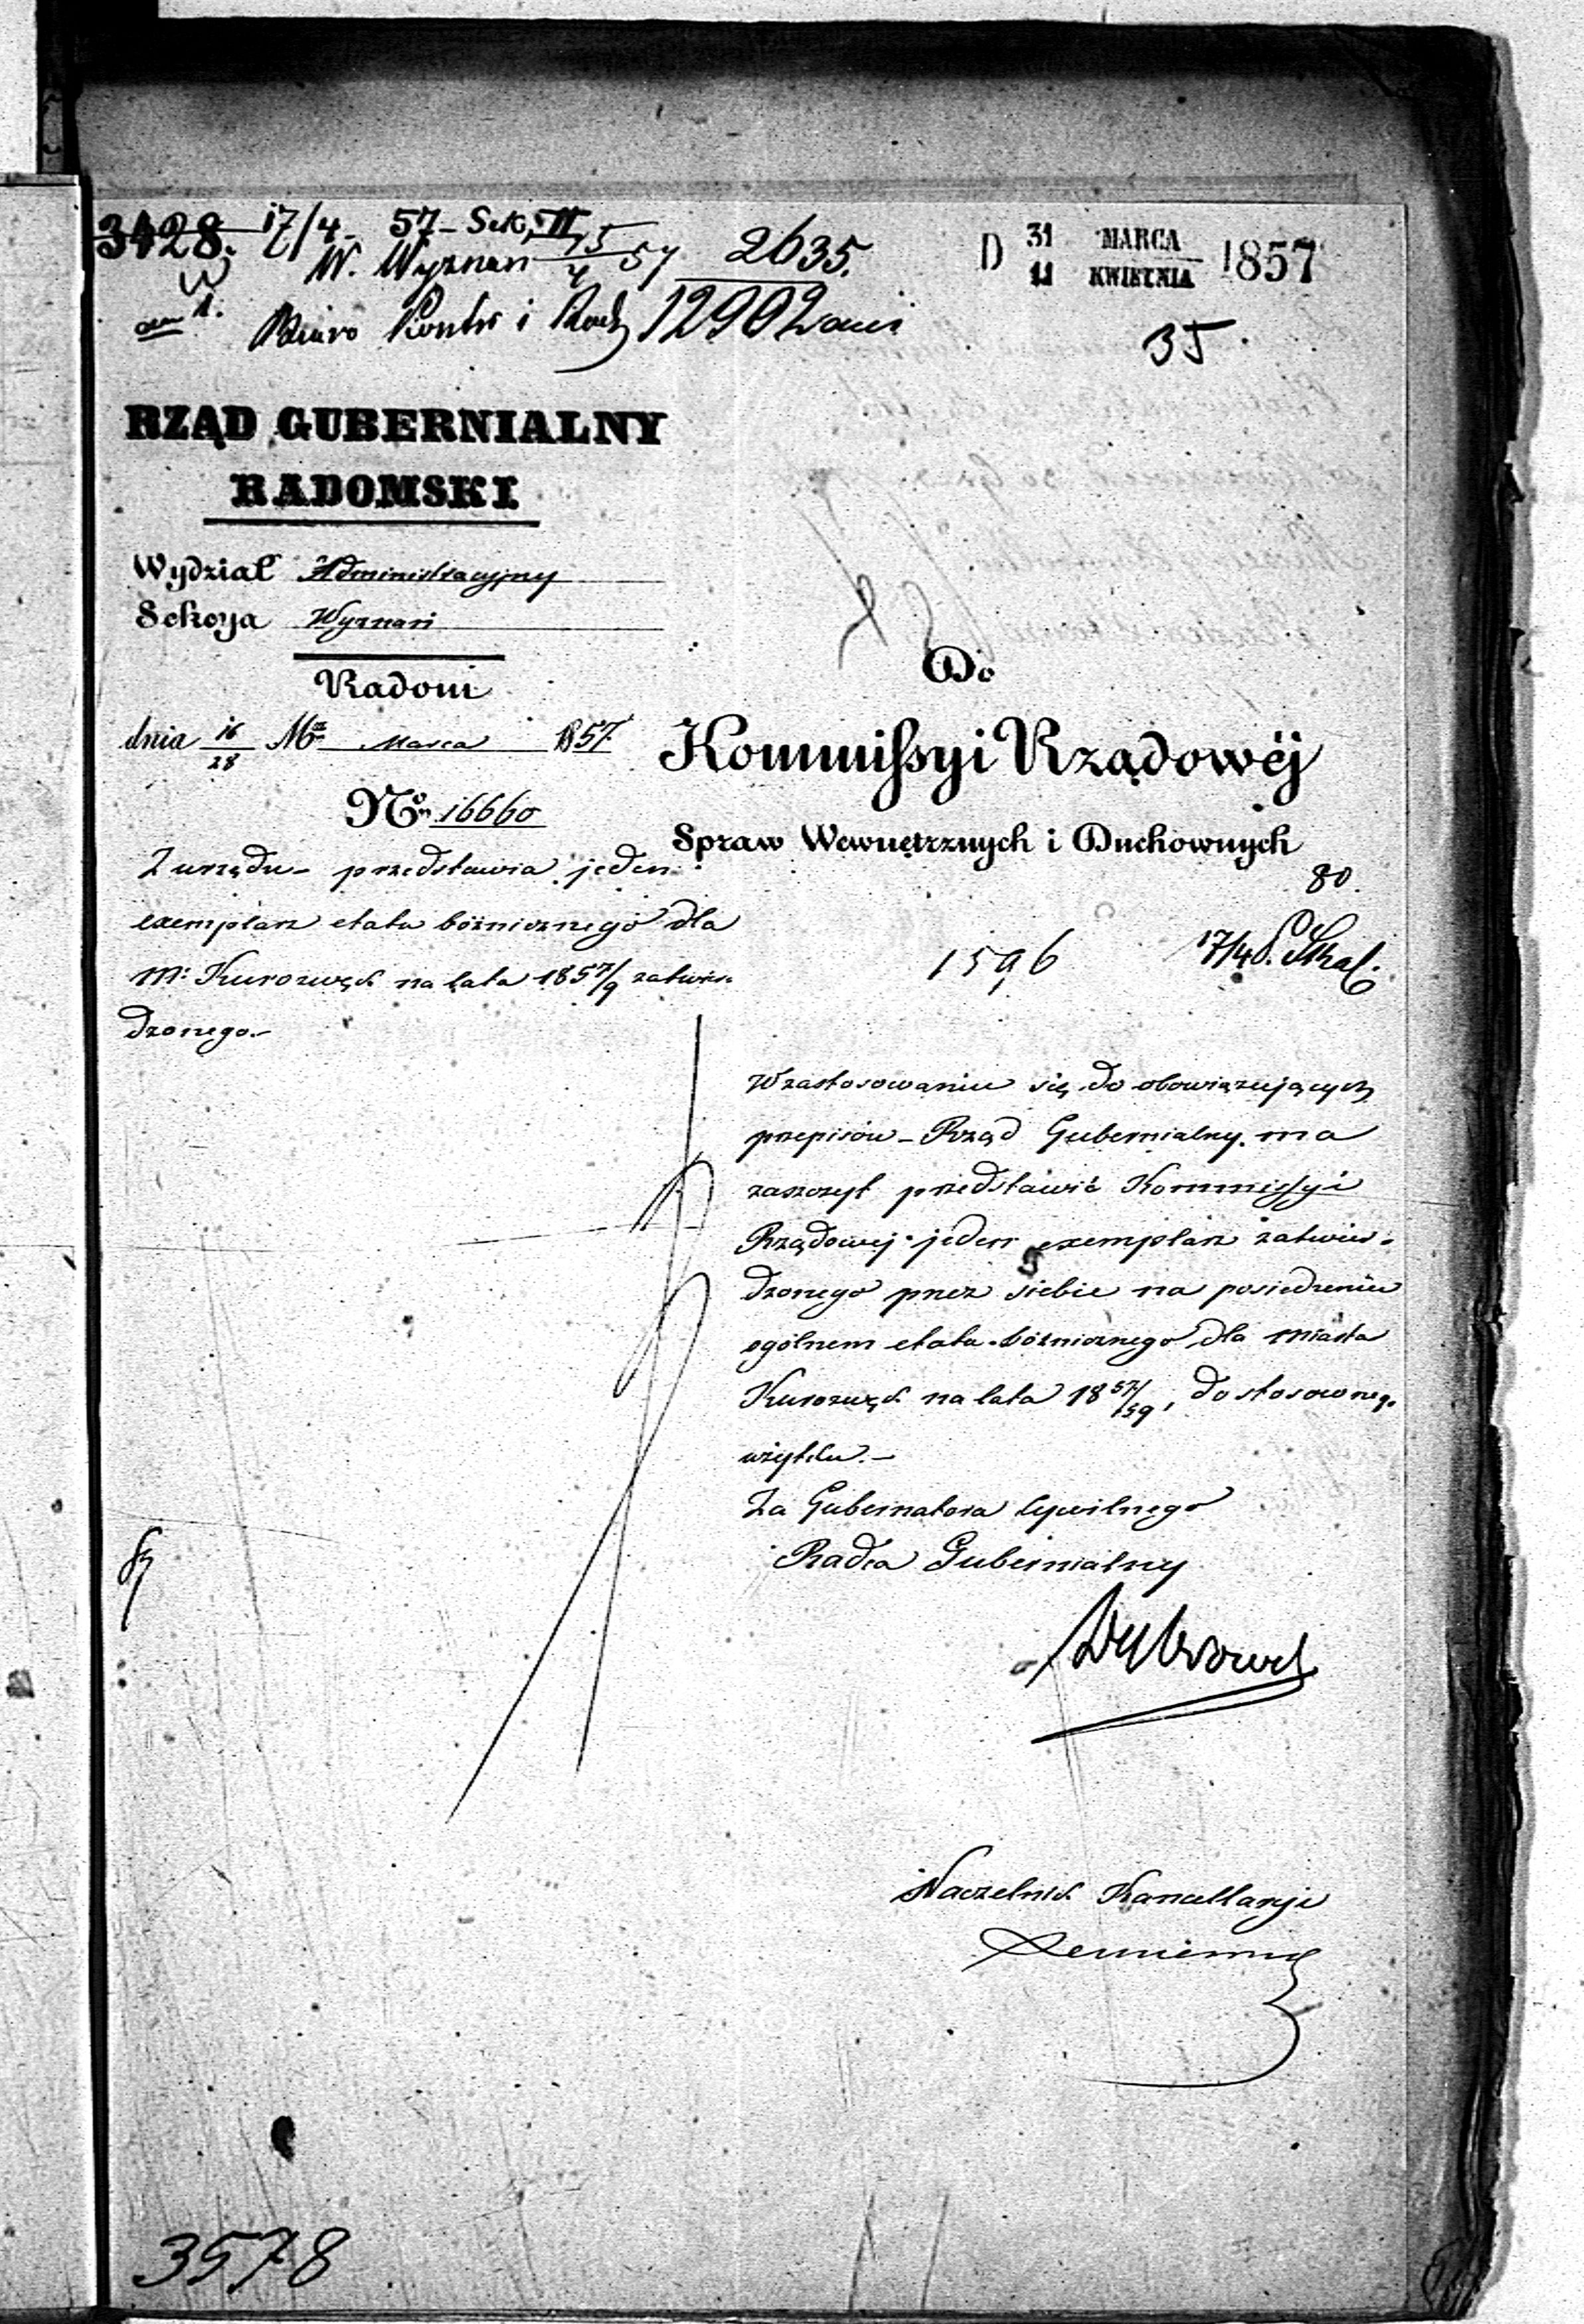 3428. 17/4 57 Sek. II
W. Wyznań 15/4 57 2635.
D 31 MARCA / 11 KWIETNIA 1857
Biuro Kontr i 12902
35.
RZĄD GUBERNIALNY
RADOMSKI
Wydział Administracyjny
Sekcya Wyznań
Radom
dnia 16/28 Mca Marca 1857
No 16660
Z urzędu – przedstawia jeden
exemplarz etatu bóżnicznego dla
m: Kurozwęk na lata 1857/9 zatwier-
dzonego.–
Do
Kommissyi Rządowéj
Spraw Wewnętrznych i Duchownych
80.
1596 17/4
W zastosowaniu się do obowiązujących
przepisów – Rząd Gubernialny ma
zaszczyt przedstawić Kommissyi
Rządowej jeden exemplarz zatwier-
dzonego przez siebie na posiedzeniu
ogólnem etatu bóżnicznego dla miasta
Kurozwęk na lata 1857/59, do stosownego
użytku.–
Za Gubernatora Cywilnego
Radca Gubernialny
Naczelnik Kancellaryi
3578